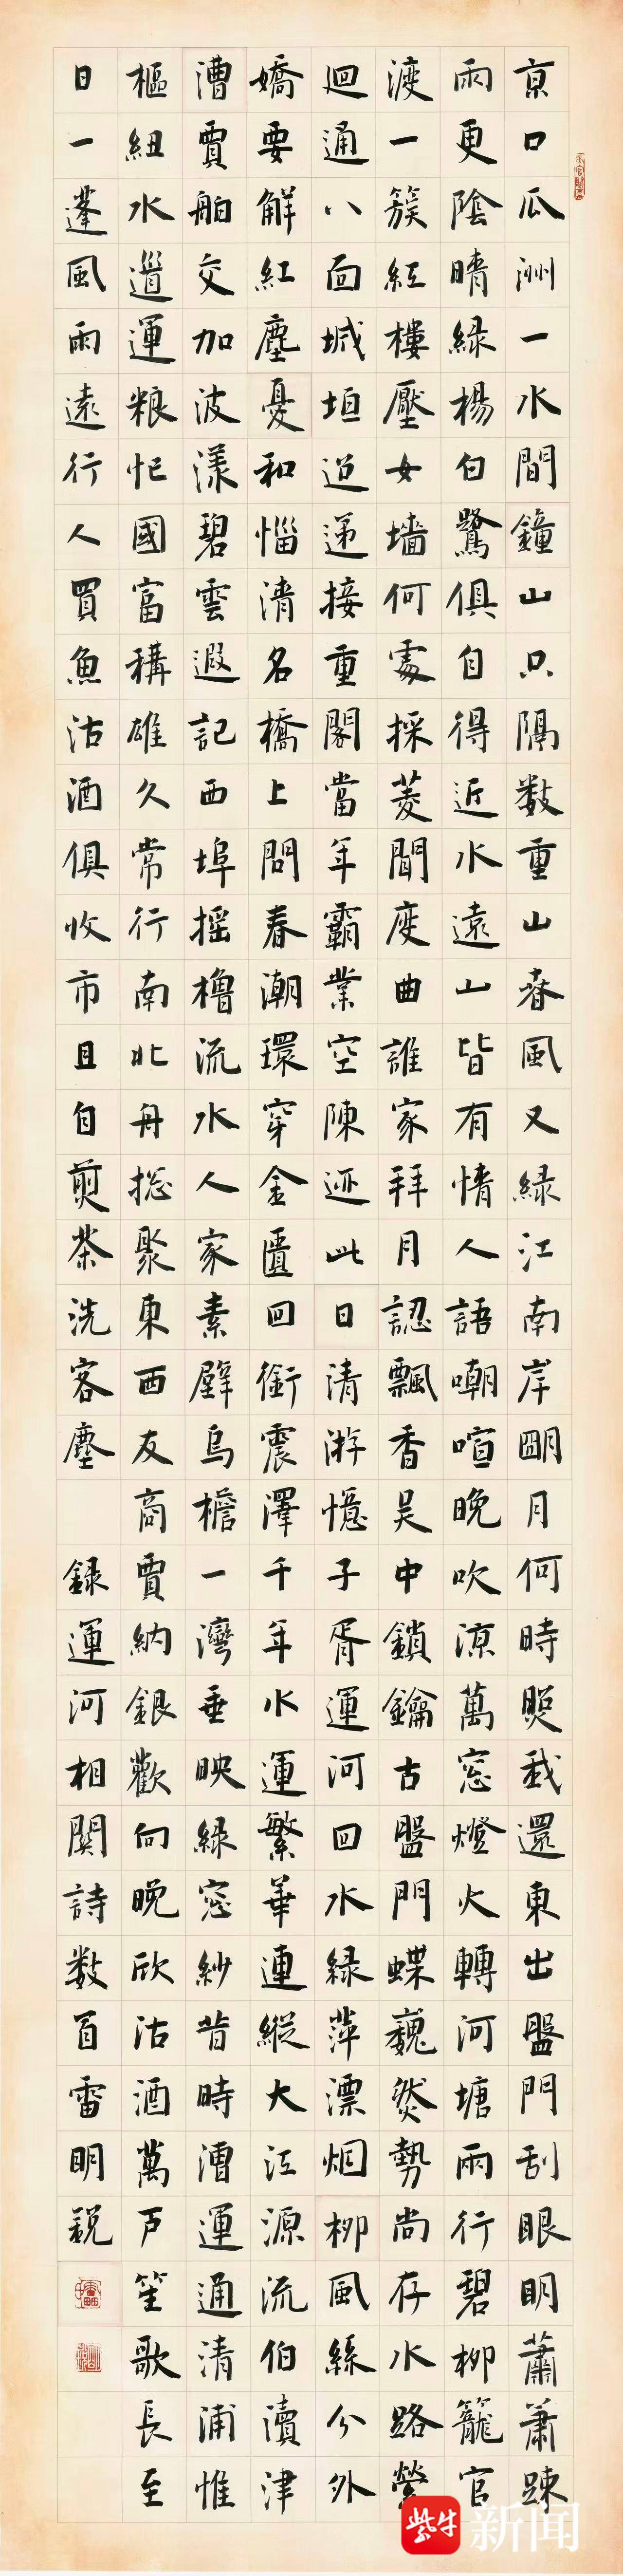 京口瓜洲一水間鐘山只隔数重山春風又緑江南岸明月何時照我還東出盤門刮眼明蕭蕭踈
雨更陰晴緑楊白鷺俱自得近水遠山皆有情人語嘲喧晚吹凉萬窓燈火轉河塘兩行碧柳籠官
渡一簇紅樓壓女墻何處採菱聞度曲誰家拜月認飄香吴中鎖鑰古盤門蝶巍然勢尚存水路縈
迴通八面城垣迢递接重閣當年霸業空陳迹此日清游憶子胥運河回水緑萍漂烟柳風絲分外
嬌要解紅塵憂和惱清名橋上問春潮環穿金匱回銜震澤千年水運繁華連縱大江源流伯瀆津
漕賈舶交加波漾碧雲遐記西埠摇櫓流水人家素壁烏檐一灣垂映緑窓紗昔時漕運通清浦惟
樞紐水道運粮忙國富稱雄久常行南北舟総聚東西友商賈納銀歡向晚欣沽酒萬戸笙歌長至
日一蓬風雨遠行人買魚沽酒俱收市且自煎茶洗客塵 録運河相關詩数首雷明銳
紫牛新闻